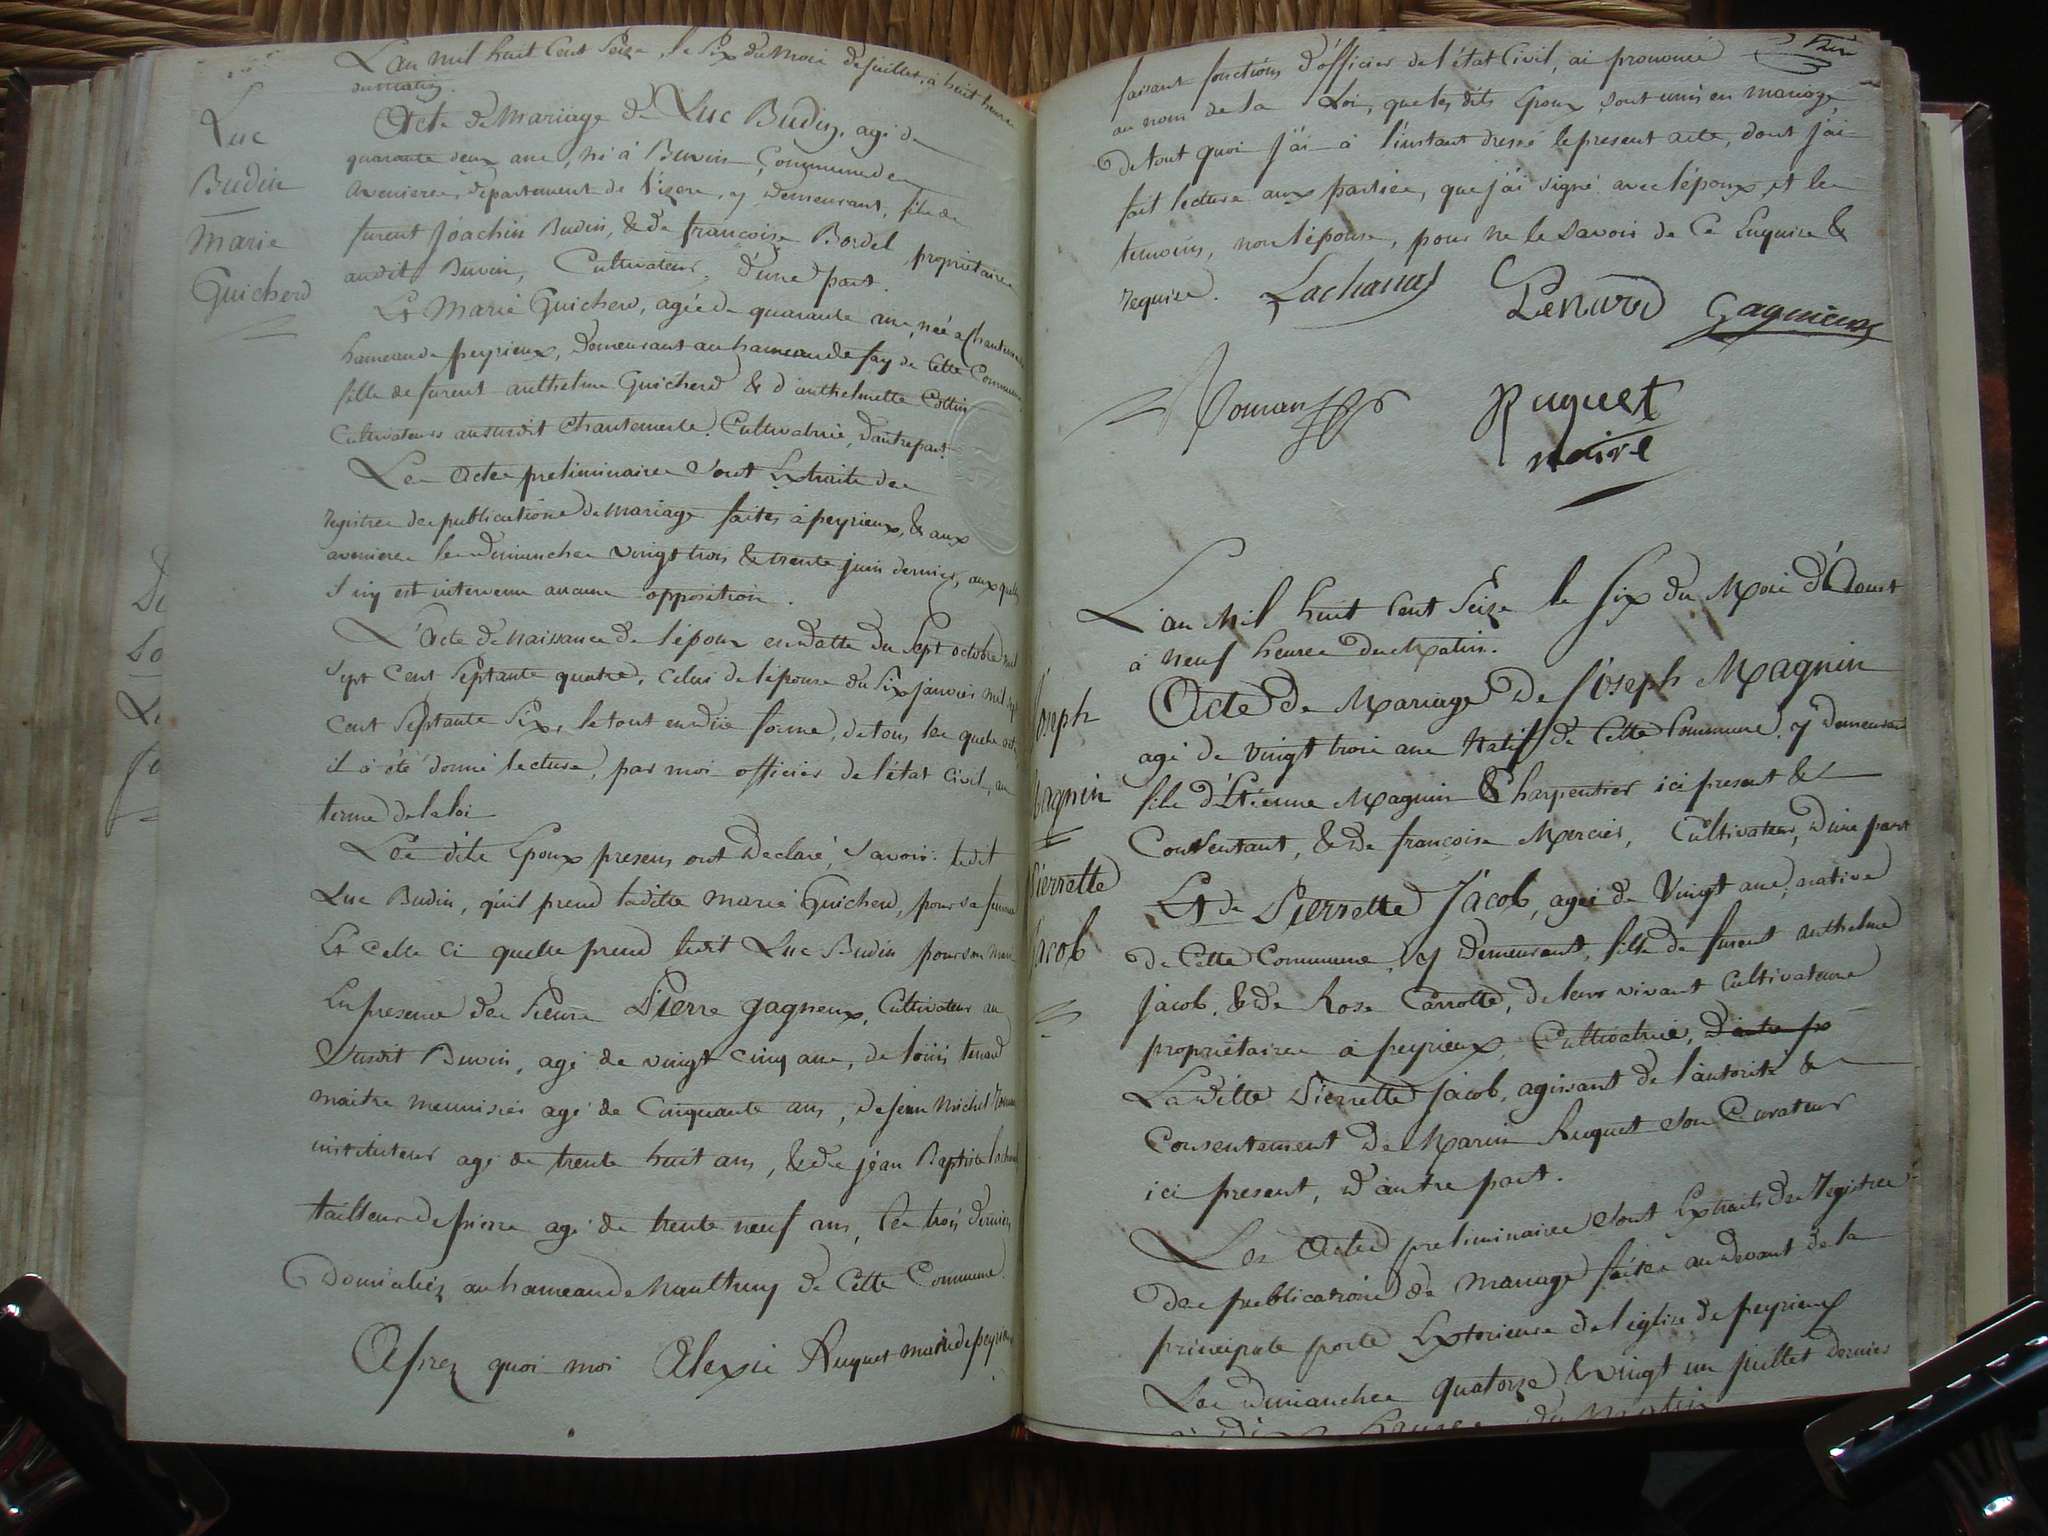 L'an mil huit Cent Seize, le Six du mois de juillet, à huit heures
du matin.
Luc
Budin
Marie
Guicherd
Acte de Mariage de Luc Budin, agé de
quarante deux ans, né à Buvin Commune des
avenieres, département de l'izere, y demeurant, fils de
furent joachin Budin, & de francoise Bordel propriétaires
audit Buvin, Cultivateur, d'une part.
Et Marie Guicherd, agée de quarante ans, née a Chantemerle
hameau de peyrieux, demeurant au hameau de fay de Cette Commune,
fille de furent anthelme Guicherd & d'anthelmette Cottin
Cultivateurs ausurdit Chantemerle. Cultivatrice, d'autre part.
Les Actes preliminaires sont Extraits des
registres des publications de mariage faites à peyrieux, & aux
avenieres les dimanches vingt trois & trente juin dernier, aux quels
il n'y est intervenu aucune opposition.
L'Acte de naissance de l'époux en datte du Sept octobre mil
Sept Cent Septante quatre, Celui de l'épouse du Six janvier mil Sept
Cent Septante Six, le tout en due forme, de tous les quels actes
il a été donné lecture, par moi officier de l'état Civil, au
terme de la loi
Les dits Epoux presens ont Declaré, Savoir: ledit
Luc Budin, qu'il prend laditte marie Guicherd, pour sa femme
Et Celle Ci quelle prend ledit Luc Budin pour son mari
En presence des Sieurs Pierre gagneux, Cultivateur au
Susdit Buvin, agé de vingt cinq ans, de loüis lenard
maitre menuisier agé de Cinquante ans, de jean michel Roman
instituteur agé de trente huit ans, & de jéan Baptiste lachanas
tailleur de pierre agé de trente neuf ans, les trois derniers
Domiciliez au hameau de Nauthuy de Cette Commune.
Aprez quoi moi Alexis Ruquet maire de peyrieux
faisant fonctions d'officier de l'état Civil, ai prononcé
au nom de la Loi, que les dits Epoux, sont unis en mariage
De tout quoi j'ai à l'instant dressé le present acte, dont j'ai
fait lecture aux parties, que j'ai signé avec l'époux, et les
temoins, non l'épouse, pour ne le Savoir de Ce Enquise &
requise. Lachanas Lenard Gagnieux
Roman Ruquet
maire
L'an Mil huit Cent Seize le Six du Mois d'Aoust
à neuf heures du Matin.
Joseph
Magnin
Pierrette
Jacob
Acte de Mariage de Joseph Magnin
agé de vingt trois ans Natif de Cette Commune y demeurant
fils d'Etienne Magnin Charpentier ici present &
Consentant, & de francoise Mercier, Cultivateur, d'une part
Et de Pierrette Jacob, agée de Vingt ans, native
de Cette Commune, y demeurant, fille de furent anthelme
Jacob, & de Rose Carrotte, de leur vivant Cultivateurs
propriétaires à peyrieux, Cultivatrice, d'autre p
Laditte Pierrette Jacob, agissant de l'autorité &
Consentement de Marin Ruquet son Curateur
ici present, d'autre part.
Les Actes preliminaires sont Extraits des registres
des publications de mariage faites au devant de la
principale porte Extérieure de l'église de peyrieux
Les dimanches quatorze & vingt un juillet dernier
à Dix heures du Matin